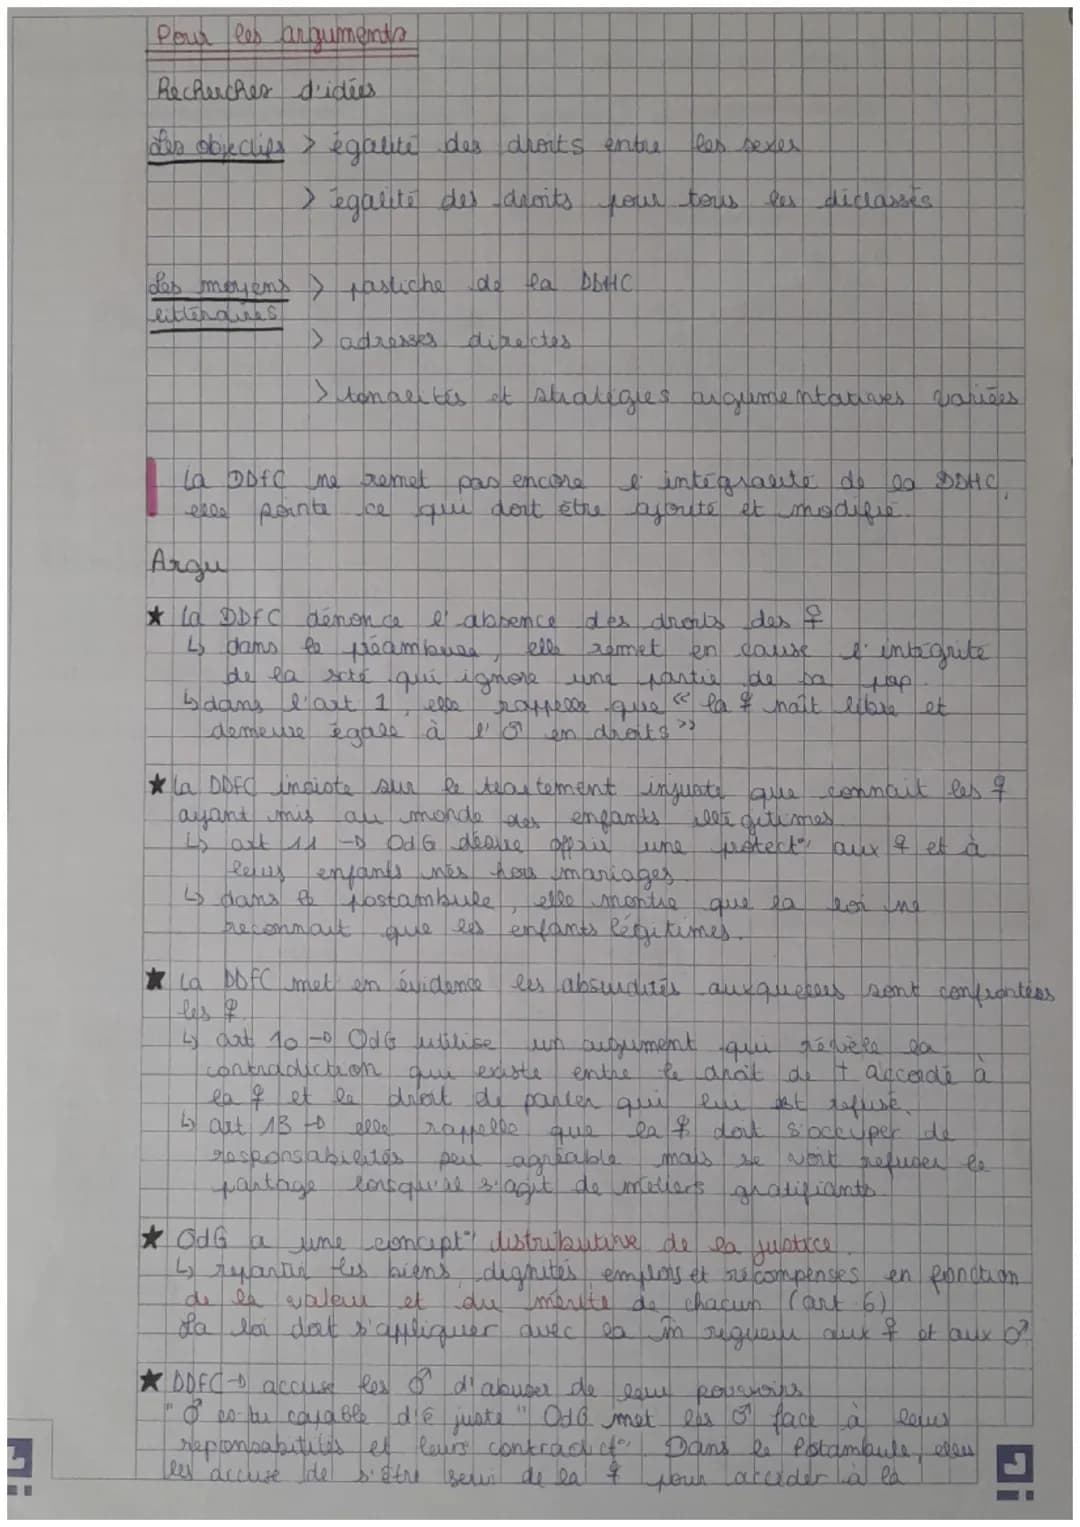 Pour les arguments
Rechercher d'idées
Les objectifs > égalité des droits entre les sexes
> égalité des droits pour tous les déclassés
Les moyens > pastiche de la DDHC
littéraires
> adresses directes
> tonalités et stratégies argumentatives variées
La DDFC ne remet pas encore l'intégralité de la DDHC,
elle pointe ce qui doit être ajouté et modifié.
Argu
★ La DDFC dénonce l'absence des droits des ♀
↳ dans le préambule, elle remet en cause l'intégrité
de la scté qui ignore une partie de sa pop.
↳ dans l'art 1, elle rappelle que « la ♀ naît libre et
demeure égale à l'♂ en droits »
★ La DDFC insiste sur le traitement injuste que connait les ♀
ayant mis au monde des enfants illégitimes
↳ art 11 → OdG désire offrir une protect° aux ♀ et à
leurs enfants nés hors mariages.
↳ dans le postambule, elle montre que la loi ne
reconnait que les enfants légitimes.
★ La DDFC met en évidence les absurdités auxquelles sont confrontées
les ♀
↳ art 10 → OdG utilise un argument qui révèle la
contradiction qui existe entre le droit de † accordé à
la ♀ et le droit de parler qui lui est refusé.
↳ art 13 → elle rappelle que la ♀ doit s'occuper de
responsabilités peu agréable mais se voit refuser le
partage lorsqu'il s'agit de métiers gratifiants
★ OdG a une concept° distributive de la justice.
↳ répartir les biens, dignités, emplois et récompenses en fonction
de la valeur et du mérite de chacun (art 6)
La loi doit s'appliquer avec la m̂ rigueur aux ♀ et aux ♂
★ DDFC → accuse les ♂ d'abuser de leur pouvoirs
"♂ es-tu capable d'ê juste" OdG met les ♂ face à leurs
responsabilités et leurs contradict°. Dans le Postambule, elle
les accuse de s'être servi de la ♀ pour accéder à la